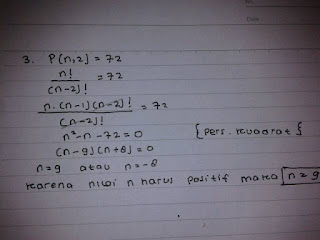 3. P(n,2) = 72
n!/(n-2)! = 72
n.(n-1)(n-2)!/(n-2)! = 72
n²-n-72=0 {pers. kuadrat}
(n-9)(n+8)=0
n=9 atau n=-8
karena nilai n harus positif maka n=9